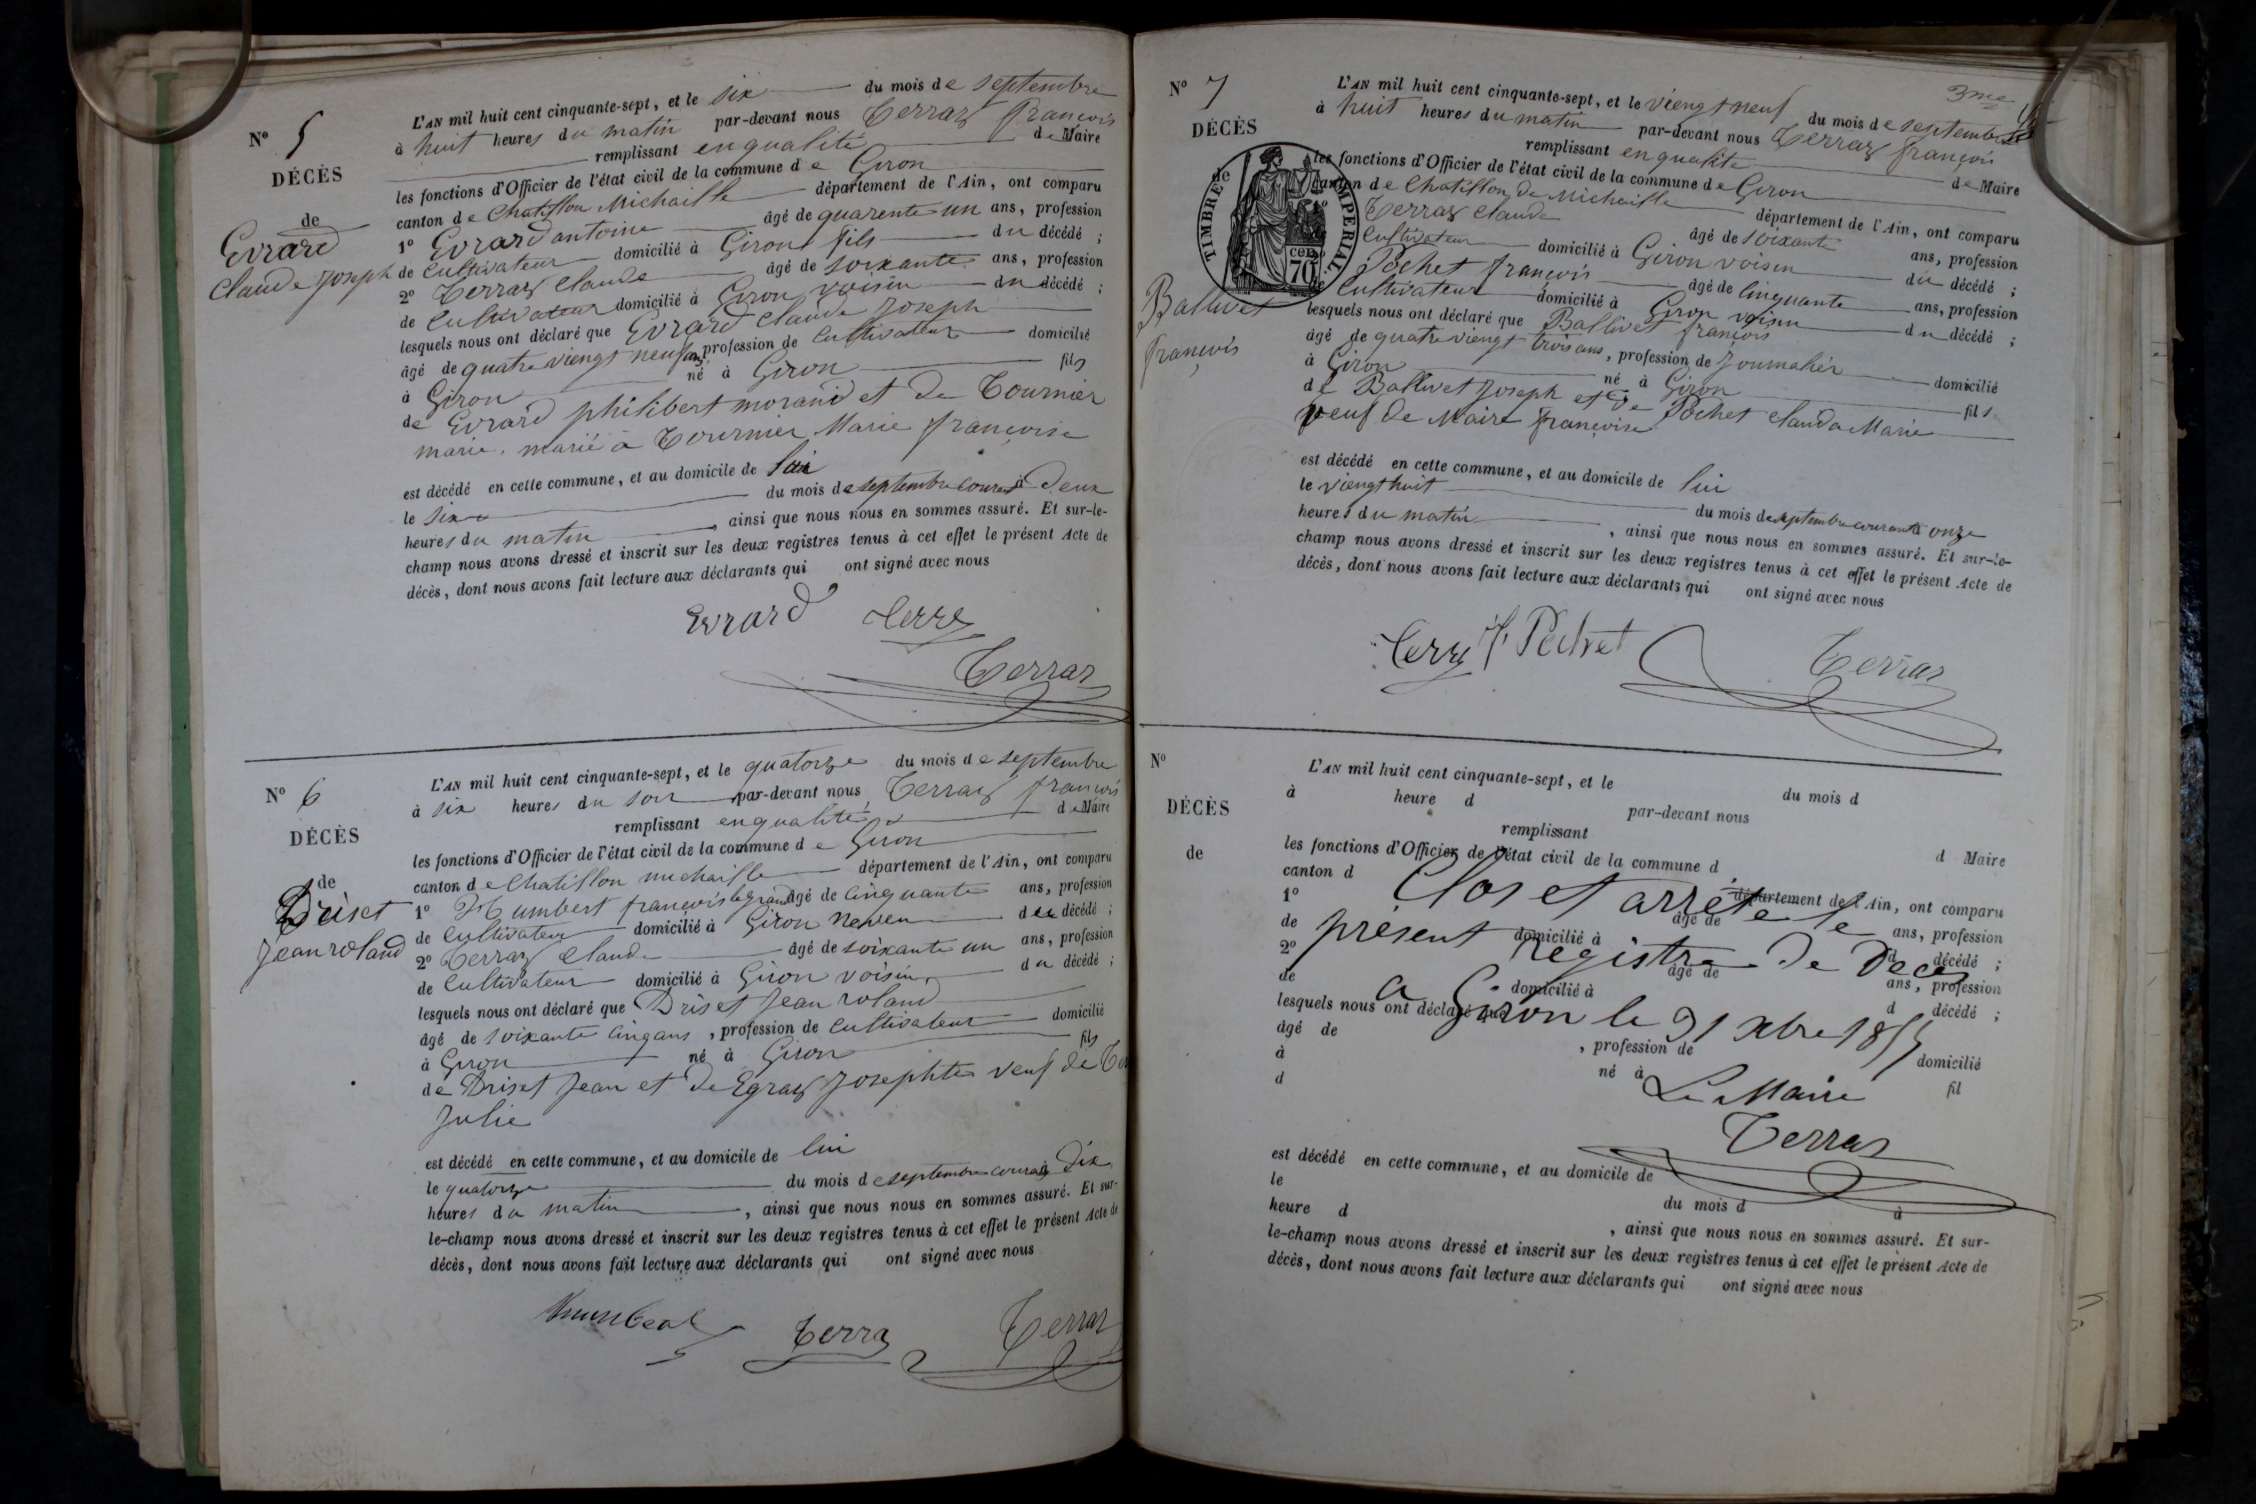 N° 5
DÉCÈS
de
Evrard
Claude Joseph
L'AN mil huit cent cinquante-sept, et le six du mois de septembre
à huit heures du matin par-devant nous Terraz françois
remplissant en qualité de Maire
les fonctions d'Officier de l'état civil de la commune de Giron
canton de Chatillon Michaille département de l'Ain, ont comparu
1° Evrard antoine âgé de quarente un ans, profession
de Cultivateur domicilié à Giron fils du décédé ;
2° Terraz Claude âgé de soixante ans, profession
de Cultivateur domicilié à Giron voisin du décédé ;
lesquels nous ont déclaré que Evrard Claude Joseph
âgé de quatre viengt neuf ans, profession de Cultivateur domicilié
à Giron né à Giron fils
de Evrard philibert morand et de Tournier
marie, marié à Tournier Marie françoise
est décédé en cette commune, et au domicile de lui
le six du mois de septembre courant à deux
heures du matin, ainsi que nous nous en sommes assuré. Et sur-le-
champ nous avons dressé et inscrit sur les deux registres tenus à cet effet le présent Acte de
décès, dont nous avons fait lecture aux déclarants qui ont signé avec nous
Evrard Terrz
Terraz
N° 6
DÉCÈS
de
Driset
Jean roland
L'AN mil huit cent cinquante-sept, et le quatorze du mois de septembre
à six heures du soir par-devant nous Terraz françois
remplissant en qualité de Maire
les fonctions d'Officier de l'état civil de la commune de Giron
canton de Chatillon michaille département de l'Ain, ont comparu
1° Humbert françois legrand âgé de cinquante ans, profession
de Cultivateur domicilié à Giron neveu du décédé ;
2° Terraz Claude âgé de soixante un ans, profession
de Cultivateur domicilié à Giron voisin du décédé ;
lesquels nous ont déclaré que Driset Jean roland
âgé de soixante cinq ans, profession de Cultivateur domicilié
à Giron né à Giron fils
de Driset Jean et de Egraz Josephte veuf de
Julie
est décédé en cette commune, et au domicile de lui
le quatorze du mois de septembre courant à dix
heures du matin, ainsi que nous nous en sommes assuré. Et sur-
le-champ nous avons dressé et inscrit sur les deux registres tenus à cet effet le présent Acte de
décès, dont nous avons fait lecture aux déclarants qui ont signé avec nous
Humbert Terra Terraz
N° 7
3me
DÉCÈS
de
TIMBRE IMPERIAL.
70 cen.
Ballivet
françois
L'AN mil huit cent cinquante-sept, et le viengt neuf du mois de septembre
à huit heures du matin par-devant nous Terraz françois
remplissant en qualité de Maire
les fonctions d'Officier de l'état civil de la commune de Giron
canton de Chatillon de Michaille département de l'Ain, ont comparu
Terraz Claude âgé de soixante ans, profession
Cultivateur domicilié à Giron voisin du décédé ;
Pochet françois âgé de cinquante ans, profession
de Cultivateur domicilié à Giron voisin du décédé ;
lesquels nous ont déclaré que Ballivet françois
âgé de quatre viengt trois ans, profession de Journalier domicilié
à Giron né à Giron fils
de Ballivet Joseph et de Pochet Clauda Marie
veuf de Maire françoise
est décédé en cette commune, et au domicile de lui
le viengt huit du mois de septembre courant à onze
heures du matin, ainsi que nous nous en sommes assuré. Et sur-le-
champ nous avons dressé et inscrit sur les deux registres tenus à cet effet le présent Acte de
décès, dont nous avons fait lecture aux déclarants qui ont signé avec nous
Terrz f Pochet Terraz
N°
DÉCÈS
de
L'AN mil huit cent cinquante-sept, et le du mois d
à heure d par-devant nous
remplissant d Maire
les fonctions d'Officier de l'état civil de la commune d
canton d département de l'Ain, ont comparu
1° âgé de ans, profession
de domicilié à d décédé ;
2° âgé de ans, profession
de domicilié à d décédé ;
lesquels nous ont déclaré que
âgé de , profession de domicilié
à né à fil
d
Clos et arrêté le
présent registre de Deces
a Giron le 31 xbre 1857
Le Maire
Terraz
est décédé en cette commune, et au domicile de
le du mois d à
heure d , ainsi que nous nous en sommes assuré. Et sur-
le-champ nous avons dressé et inscrit sur les deux registres tenus à cet effet le présent Acte de
décès, dont nous avons fait lecture aux déclarants qui ont signé avec nous